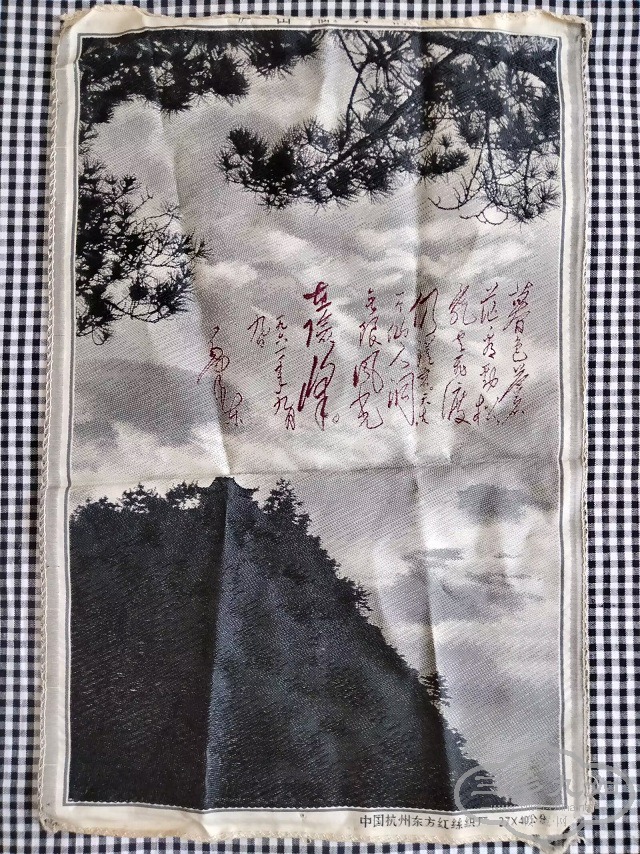 庐山仙人洞
暮色苍
茫看劲松
乱云飞渡
仍从容天生
一个仙人洞
无限风光
在险峰。
一九六一年九月
九日
毛泽东
中国杭州东方红絲織厂 27X40公分